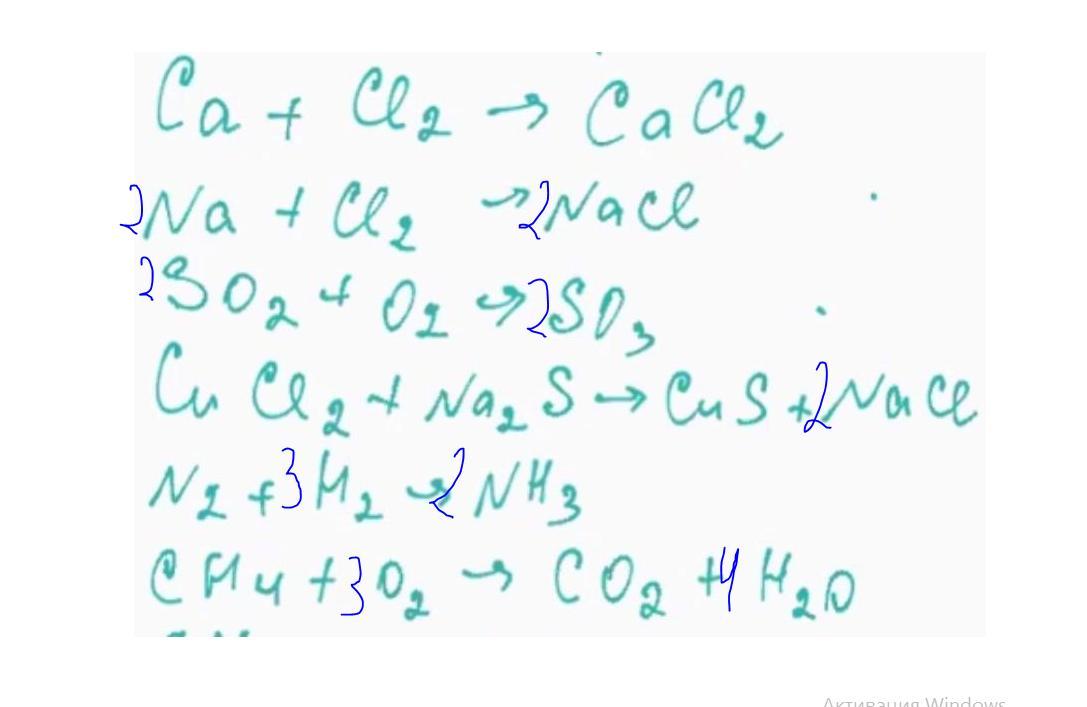 Ca + Cl₂ → CaCl₂
2Na + Cl₂ → 2NaCl
2SO₂ + O₂ → 2SO₃
CuCl₂ + Na₂S → CuS + 2NaCl
N₂ + 3H₂ → 2NH₃
CH₄ + 3O₂ → CO₂ + 4H₂O
Активация Windows